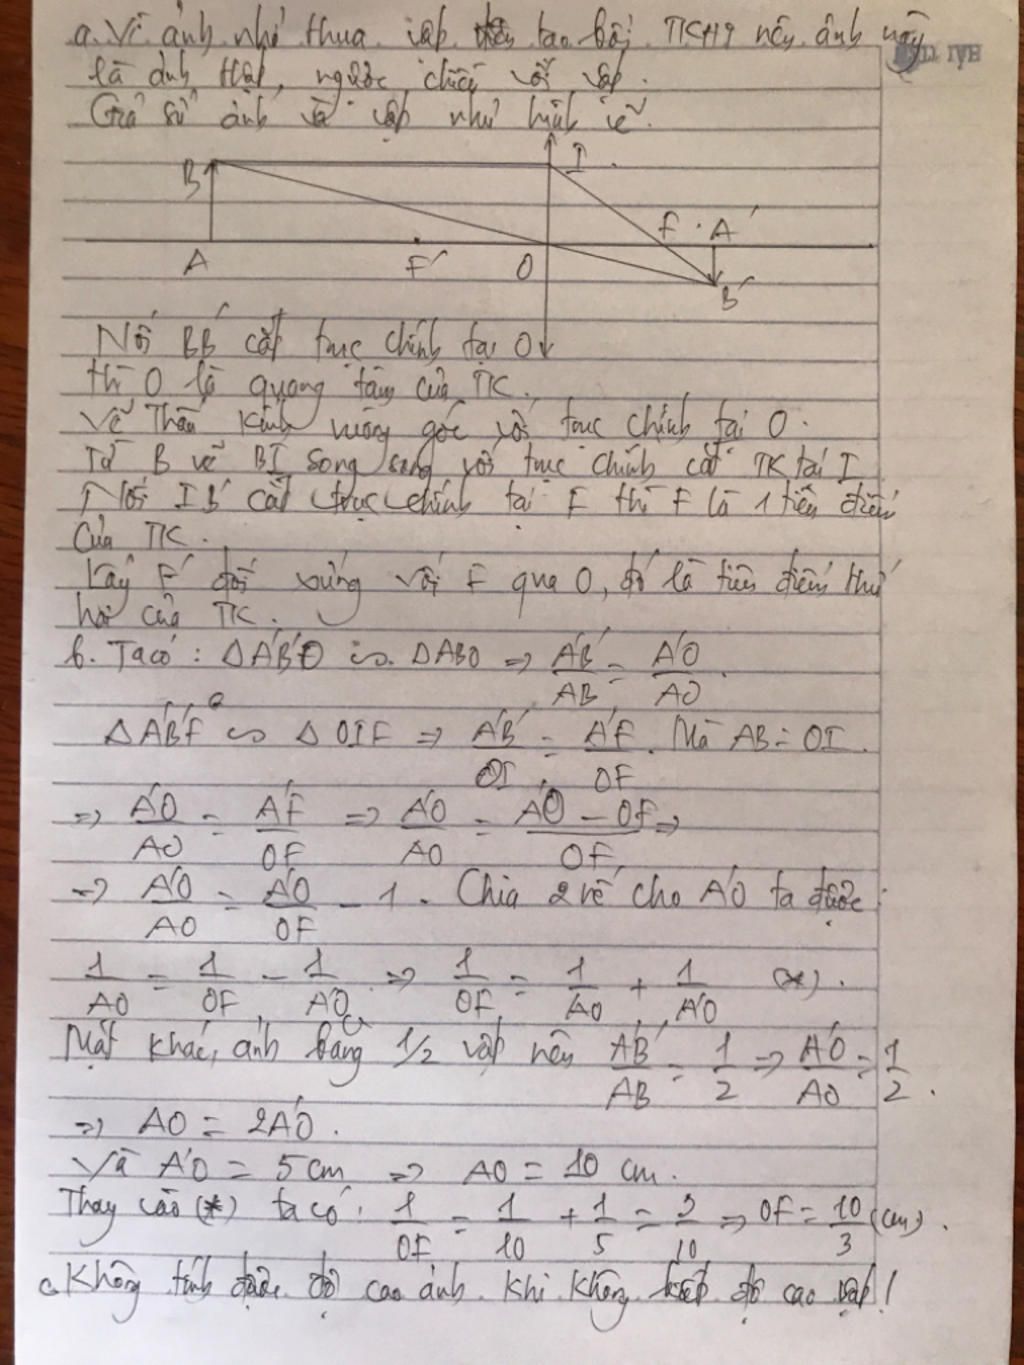 a. Vì ảnh nhỏ thua vật tạo bởi TKHT nên ảnh này
là ảnh thật, ngược chiều với vật.
Giả sử ảnh và vật như hình vẽ.
B I
F A'
A F' O B'
Nối BB' cắt trục chính tại O
thì O là quang tâm của TK.
Vẽ thấu kính vuông góc với trục chính tại O.
Từ B vẽ BI song song với trục chính cắt TK tại I
Nối IB' cắt trục chính tại F thì F là 1 tiêu điểm
của TK.
Lấy F' đối xứng với F qua O, đó là tiêu điểm thứ
hai của TK.
b. Ta có : ΔA'B'O ∽ ΔABO => A'B'/AB = A'O/AO.
ΔA'B'F ∽ ΔOIF => A'B'/OI = A'F/OF. Mà AB = OI.
=> A'O/AO = A'F/OF => A'O/AO = A'O - OF/OF =>
=> A'O/AO = A'O/OF - 1. Chia 2 vế cho A'O ta được:
1/AO = 1/OF - 1/A'O => 1/OF = 1/AO + 1/A'O (*).
Mặt khác, ảnh bằng 1/2 vật nên A'B'/AB = 1/2 => A'O/AO = 1/2.
=> AO = 2A'O.
Và A'O = 5 cm => AO = 10 cm.
Thay vào (*) ta có: 1/OF = 1/10 + 1/5 = 3/10 => OF = 10/3 (cm).
c. Không tính được độ cao ảnh khi không biết độ cao vật!